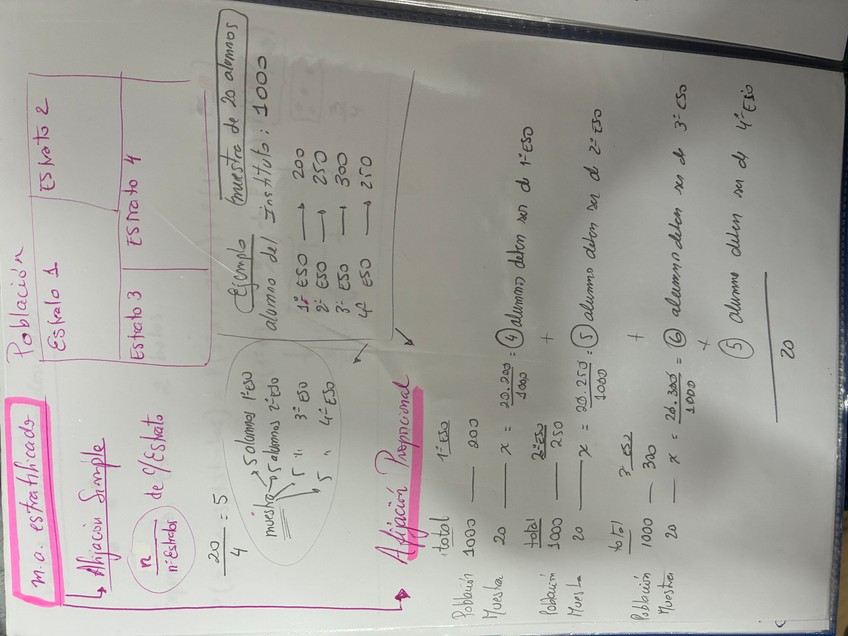 m.a. estratificado
Población
Estrato 1
Estrato 2
Estrato 3
Estrato 4
Afijación Simple
n
nº Estratos
de c/ Estrato
20
4
= 5
muestra
5 alumnos 1º ESO
5 alumnos 2º ESO
5 " 3º ESO
5 " 4º ESO
Ejemplo
muestra de 20 alumnos
alumno del Instituto: 1000
1º ESO → 200
2º ESO → 250
3º ESO → 300
4º ESO → 250
Afijación Proporcional
total 1º ESO
Población 1000 — 200
Muestra 20 — x = 20.200 / 1000 = 4 alumnos deben ser de 1º ESO
+
total 2º ESO
Población 1000 — 250
Muestra 20 — x = 20.250 / 1000 = 5 alumno deben ser de 2º ESO
+
total 3º ESO
Población 1000 — 300
Muestra 20 — x = 20.300 / 1000 = 6 alumno deben ser de 3º ESO
+
5 alumno deben ser de 4º ESO
20